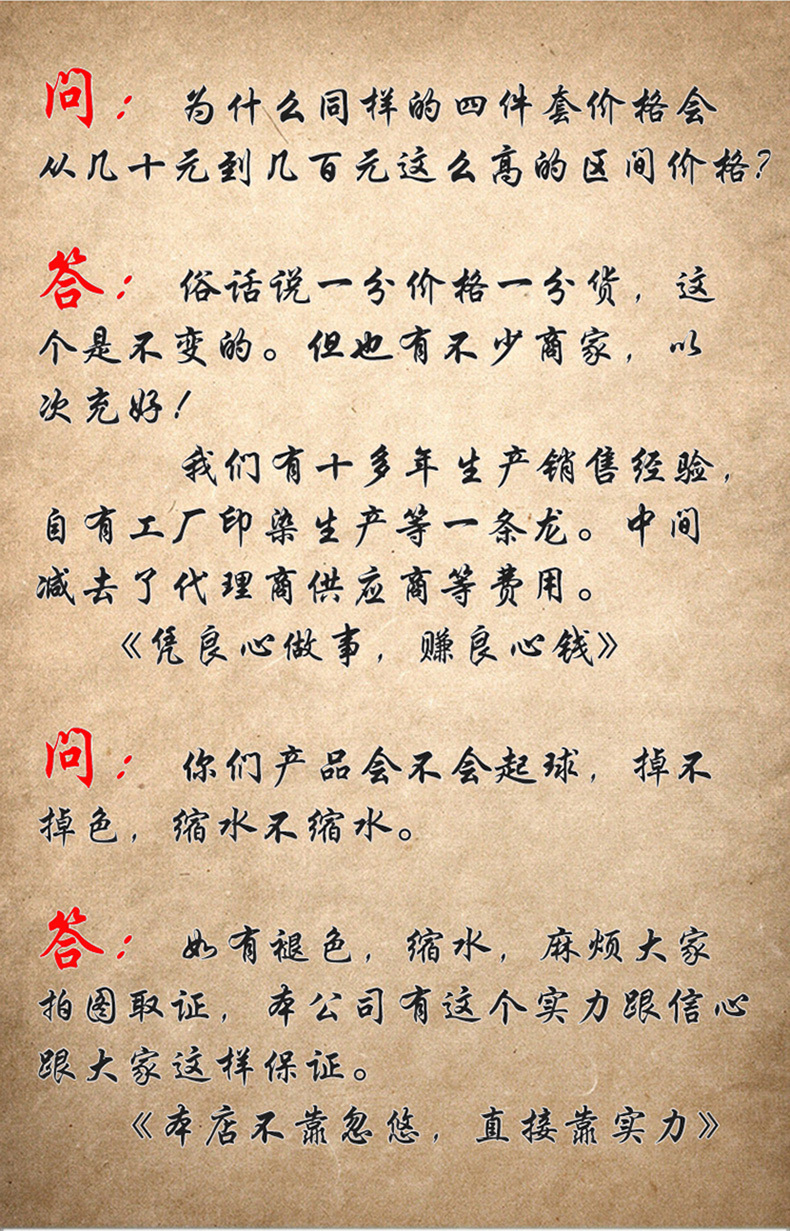 问：为什么同样的四件套价格会
从几十元到几百元这么高的区间价格?
答：俗话说一分价格一分货，这
个是不变的。但也有不少商家，以
次充好！
我们有十多年生产销售经验，
自有工厂印染生产等一条龙。中间
减去了代理商供应商等费用。
《凭良心做事，赚良心钱》
问：你们产品会不会起球，掉不
掉色，缩水不缩水。
答：如有褪色，缩水，麻烦大家
拍图取证，本公司有这个实力跟信心
跟大家这样保证。
《本店不靠忽悠，直接靠实力》